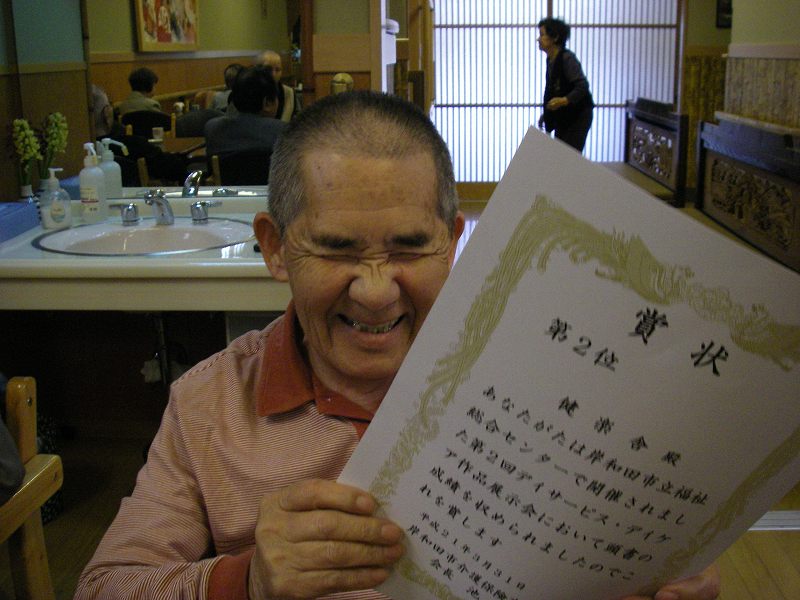 賞状
第２位
健楽舎殿
あなたがたは岸和田市立福祉
総合センターで開催されまし
た第２回デイサービス・デイケ
ア作品展示会において頭書の
成績を収められましたのでこ
れを賞します
平成２１年３月３１日
岸和田市介護保険
会長　池